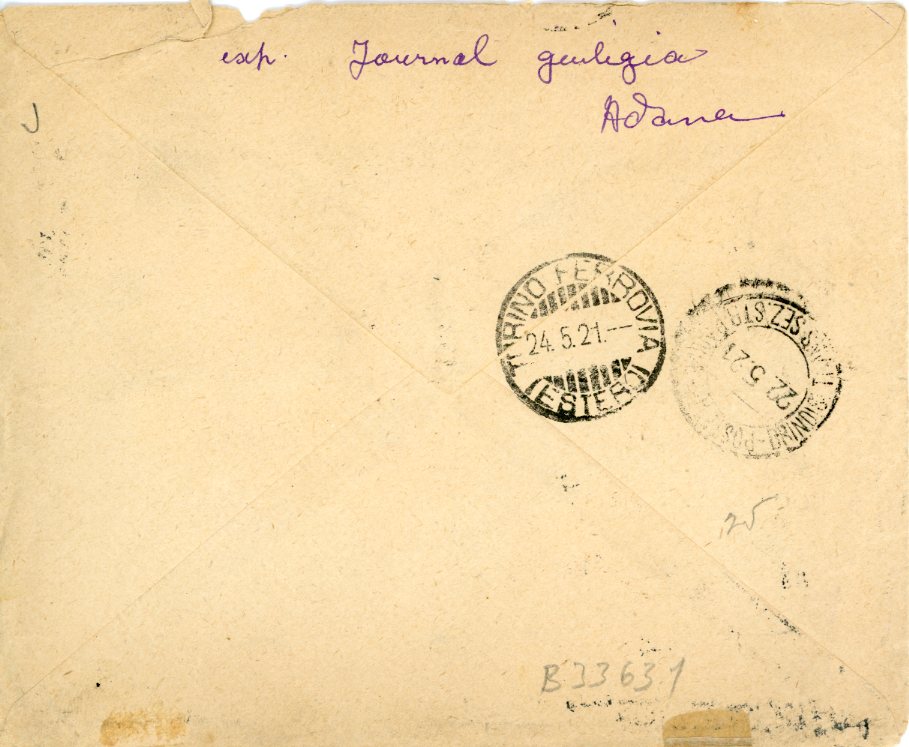 exp. Journal giuligia
Adana
J
TORINO FERROVIA
24.5.21.
(ESTERO)
BRINDISI
22.5.21
25
B33631